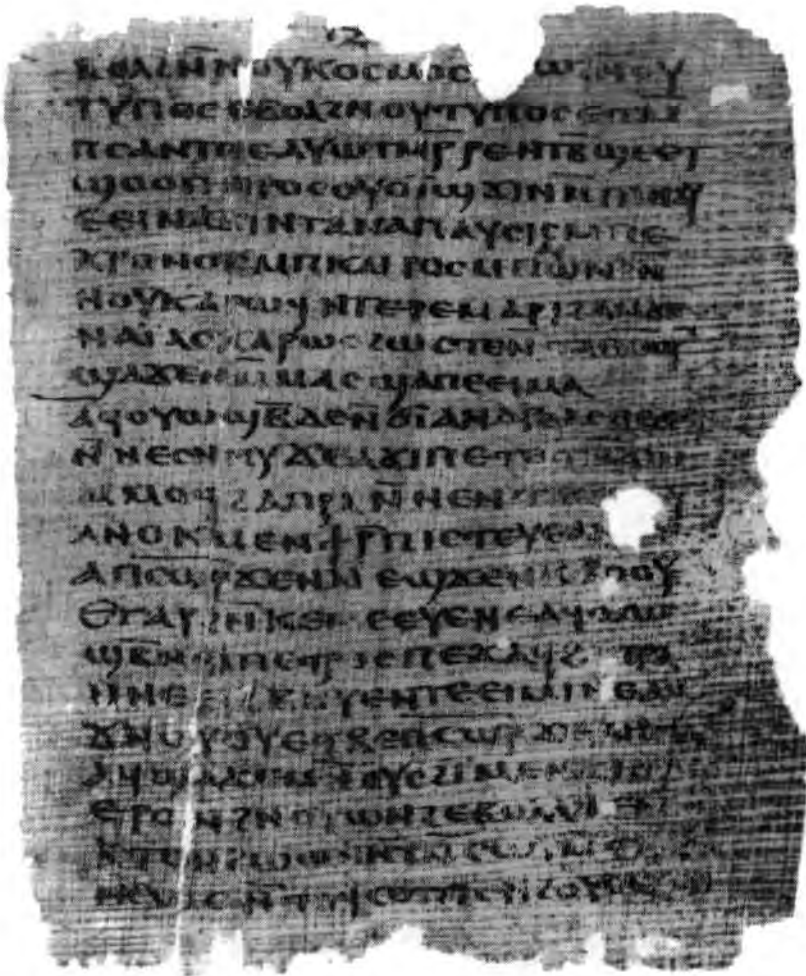 ⲓⲍ
ⲃⲟⲗ ϩⲛ̄ⲛ ⲟⲩⲕⲟⲥⲙⲟⲥ ⲱ ϩⲛ ⲟⲩ
ⲧⲩⲡⲟⲥ ⲉⲃⲟⲗ ϩⲛ ⲟⲩⲧⲩⲡⲟⲥ ⲉⲧⲙ̄
ⲡⲥⲁ ⲛⲧⲡⲉ ⲁⲩⲱ ⲧⲙⲣ̄ⲣⲉ ⲛⲧⲃ̄ϣⲉ ⲉⲧ
ϣⲟⲟⲡ ⲡⲣⲟⲥ ⲟⲩⲟⲓ̈ϣ ϫⲓⲛ ⲙ̄ⲡⲓⲛⲁⲩ
ⲉⲉⲓⲛⲁϫⲓ ⲛⲧⲁⲛⲁⲡⲁⲩⲥⲓⲥ ⲙ̄ⲡⲉ
ⲭⲣⲟⲛⲟⲥ ⲙⲡⲕⲁⲓⲣⲟⲥ ⲙ̄ⲡⲁⲓⲱⲛ ϩⲛ̄
ⲛⲟⲩⲕⲁⲣⲱϥ ⲛⲧⲉⲣⲉ ⲙⲁⲣⲓϩⲁⲙ ϫⲉ
ⲛⲁⲓ̈ ⲁⲥⲕⲁⲣⲱⲥ ϩⲱⲥⲧⲉ
ϣⲁϫⲉ ⲛⲙ̄ⲙⲁⲥ ϣⲁ ⲡⲉⲉⲓⲙⲁ
ⲁϥⲟⲩⲱϣⲃ̄ ⲇⲉ ⲛ̄ϭⲓ ⲁⲛⲇⲣⲉⲁⲥ ⲡⲉϫⲁϥ
ⲛ̄ⲛⲉⲥⲛⲏⲩ ϫⲉ ⲁϫⲓ ⲡⲉⲧⲉⲧⲛ̄ϫⲱ
ⲙⲙⲟϥ ϩⲁ ⲡⲣⲁ ⲛ̄ⲛⲉⲛⲧⲁⲥϫⲟⲟⲩ
ⲁⲛⲟⲕ ⲙⲉⲛ ϯⲣ̄ⲡⲓⲥⲧⲉⲩⲉ ⲁⲛ
ⲁⲡⲥⲱⲣ̄ ϫⲉ ⲛⲁⲓ̈ ⲉϣϫⲉ ⲛⲓⲥⲃⲟⲟⲩ
ⲉ ⲅⲁⲣ ϩⲛ̄ⲕⲉⲙⲉⲉⲩⲉ ⲛⲉ ⲁϥⲟⲩⲱ
ϣⲃ̄ ⲛ̄ϭⲓ ⲡⲉⲧⲣⲟⲥ ⲡⲉϫⲁϥ ϩⲁ ⲡⲣⲁ
ⲛⲛⲉⲉⲓϩⲃⲏⲩⲉ ⲛⲧⲉⲉⲓⲙⲓⲛⲉ ⲁϥ
ϫⲛⲟⲩⲟⲩ ⲉⲧⲃⲉ ⲡⲥⲱⲣ̄ ϫⲉ ⲙⲏⲧⲓ
ⲁϥϣⲁϫⲉ ⲙⲛ ⲟⲩⲥϩⲓⲙⲉ ⲛϫⲓⲟⲩⲉ
ⲉⲣⲟⲛ ϩⲛ ⲟⲩⲱⲛϩ ⲉⲃⲟⲗ ⲁⲛ
ⲕⲧⲟⲛ ϩⲱⲱⲛ ⲛⲧⲛ̄ⲥⲱⲧⲙ̄
ⲛⲥⲱⲥ ⲛ̄ⲧⲁϥⲥⲟⲧⲡⲥ ⲛϩⲟⲩⲟ ⲉⲣⲟⲛ